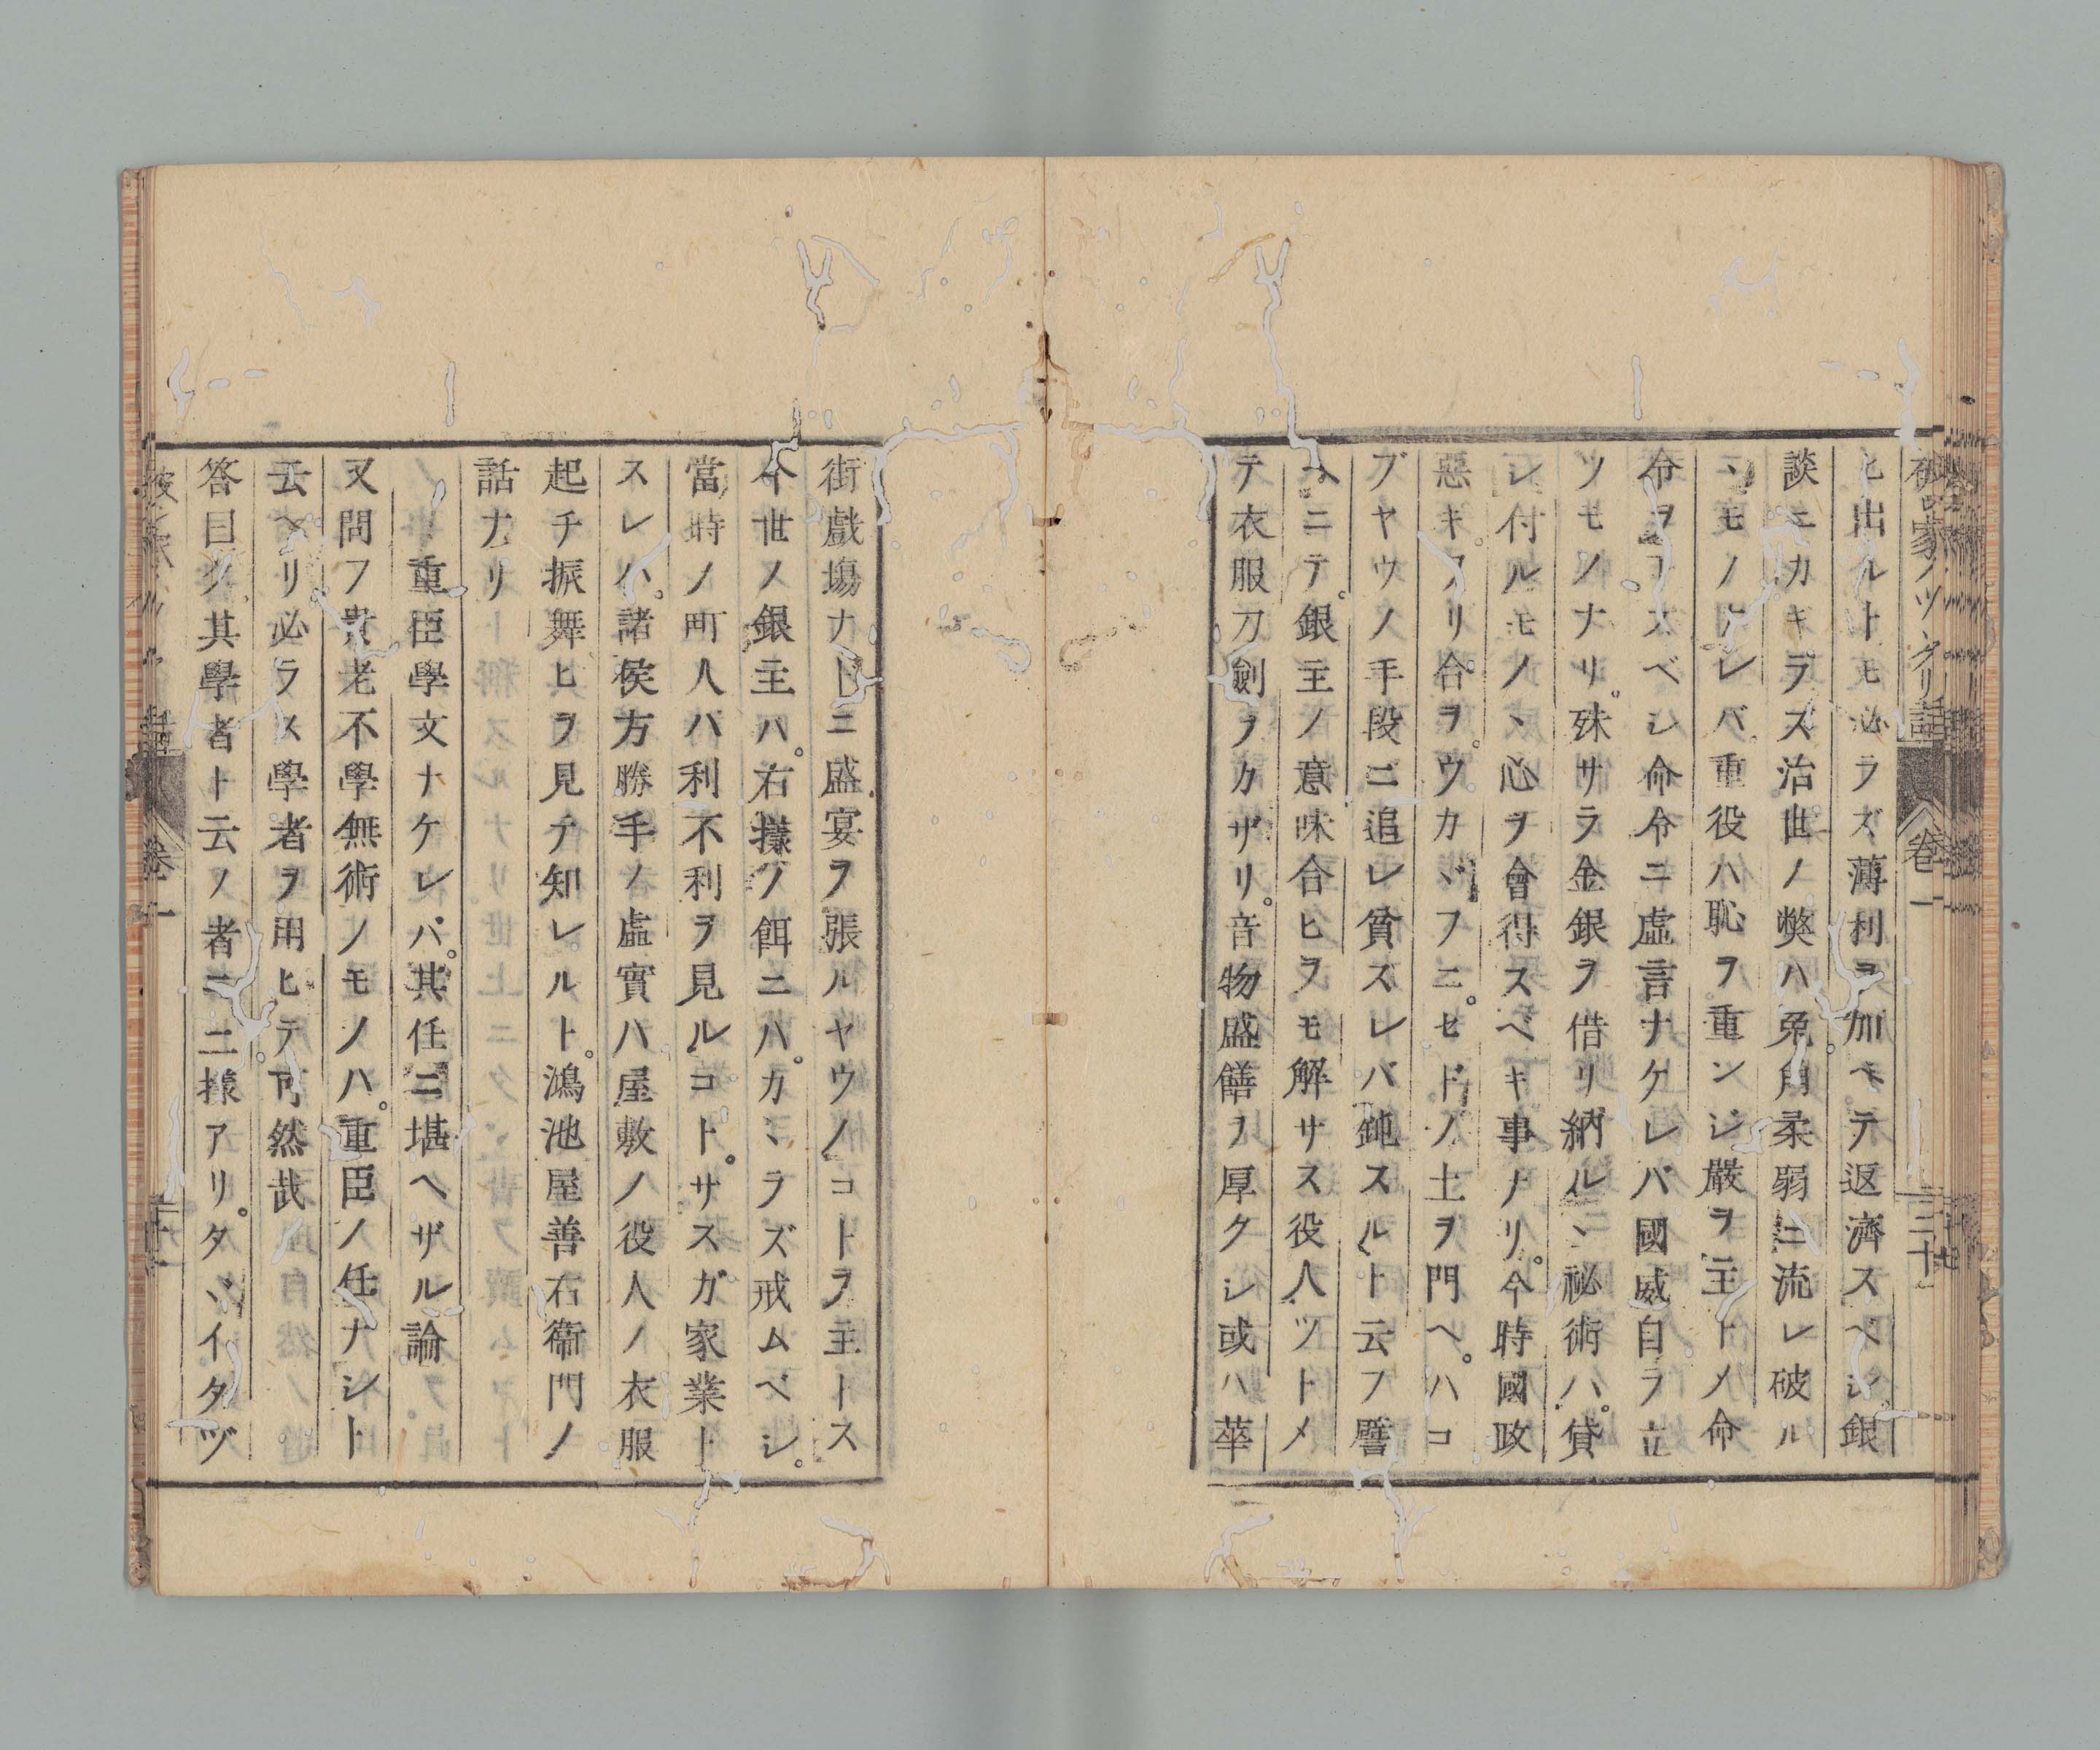 破レ家ノツヾクリ話 卷一 三十
ヒ出ルトモ必ラズ薄利ヲ加ヘテ返濟スベシ銀
談ニカキラズ治世ノ弊ハ兎角柔弱ニ流レ破ル
ヽモノナレバ重役ハ恥ヲ重ンジ嚴ヲ主トメ命
令ヲ下スベシ命令ニ虚言ナケレバ國威自ラ立
ツモノナリ。殊サラ金銀ヲ借リ納ルヽ祕術ハ。貸
シ付ルモノヽ心ヲ會得スベキ事ナリ。今時國政
惡キノリ合ヲ。ウカヾフニ。セドノ土ヲ門ヘ。ハコ
ブヤウノ手段ニ追レ貧スレバ鈍スルト云フ譬
ヘニテ。銀主ノ意味合ヒヲモ解サス役人ツトメ
テ衣服刀劍ヲカザリ。音物盛饍ヲ厚クシ或ハ華
街戲塲ナトニ盛宴ヲ張ルヤウノコトヲ主トス
今世ノ銀主ハ。右樣ノ餌ニハ。カヽラズ戒ムベシ。
當時ノ町人バ利不利ヲ見ルコト。サスガ家業ト
スレハ。諸侯方勝手ノ虚實ハ屋敷ノ役人ノ衣服
起チ振舞ヒヲ見テ知レルト。鴻池屋善右衞門ノ
話ナリ
重臣學文ナケレバ。其任ニ堪ヘザル論
又問フ貴老不學無術ノモノハ。重臣ノ任ナシト
云ヘリ必ラス學者ヲ用ヒテ。可然哉
答曰ク。其學者ト云ノ者ニ。二樣アリ。タヽイタヅ
卷一